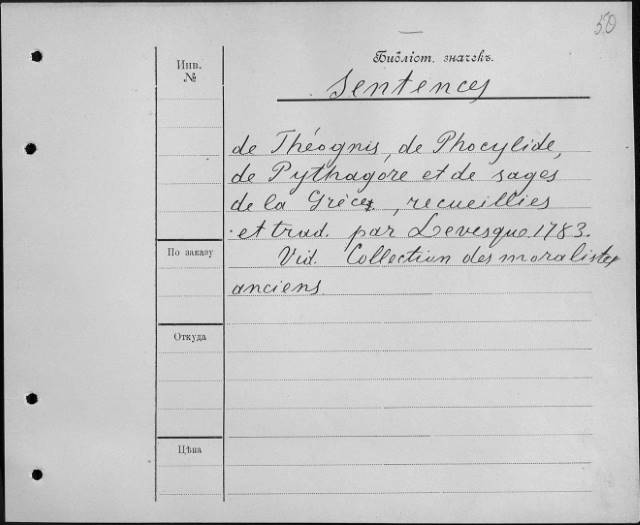 50
Библіот. значекъ.
Инв.
№
Sentences
de Théognis, de Phocylide,
de Pythagore et de sages
de la Grèce, recueillies
et trad. par Levesque. 1783.
По заказу
Vid. Collection des moralistes
anciens
Откуда
Цѣна